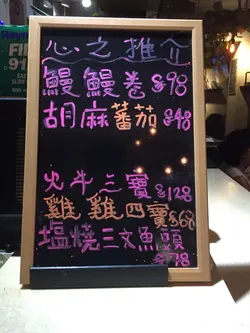 心之推介
鰻鰻卷 $98
胡麻蕃茄 $48
火斗三寶 $128
雞雞四寶 $68
塩燒三文魚頭
$78